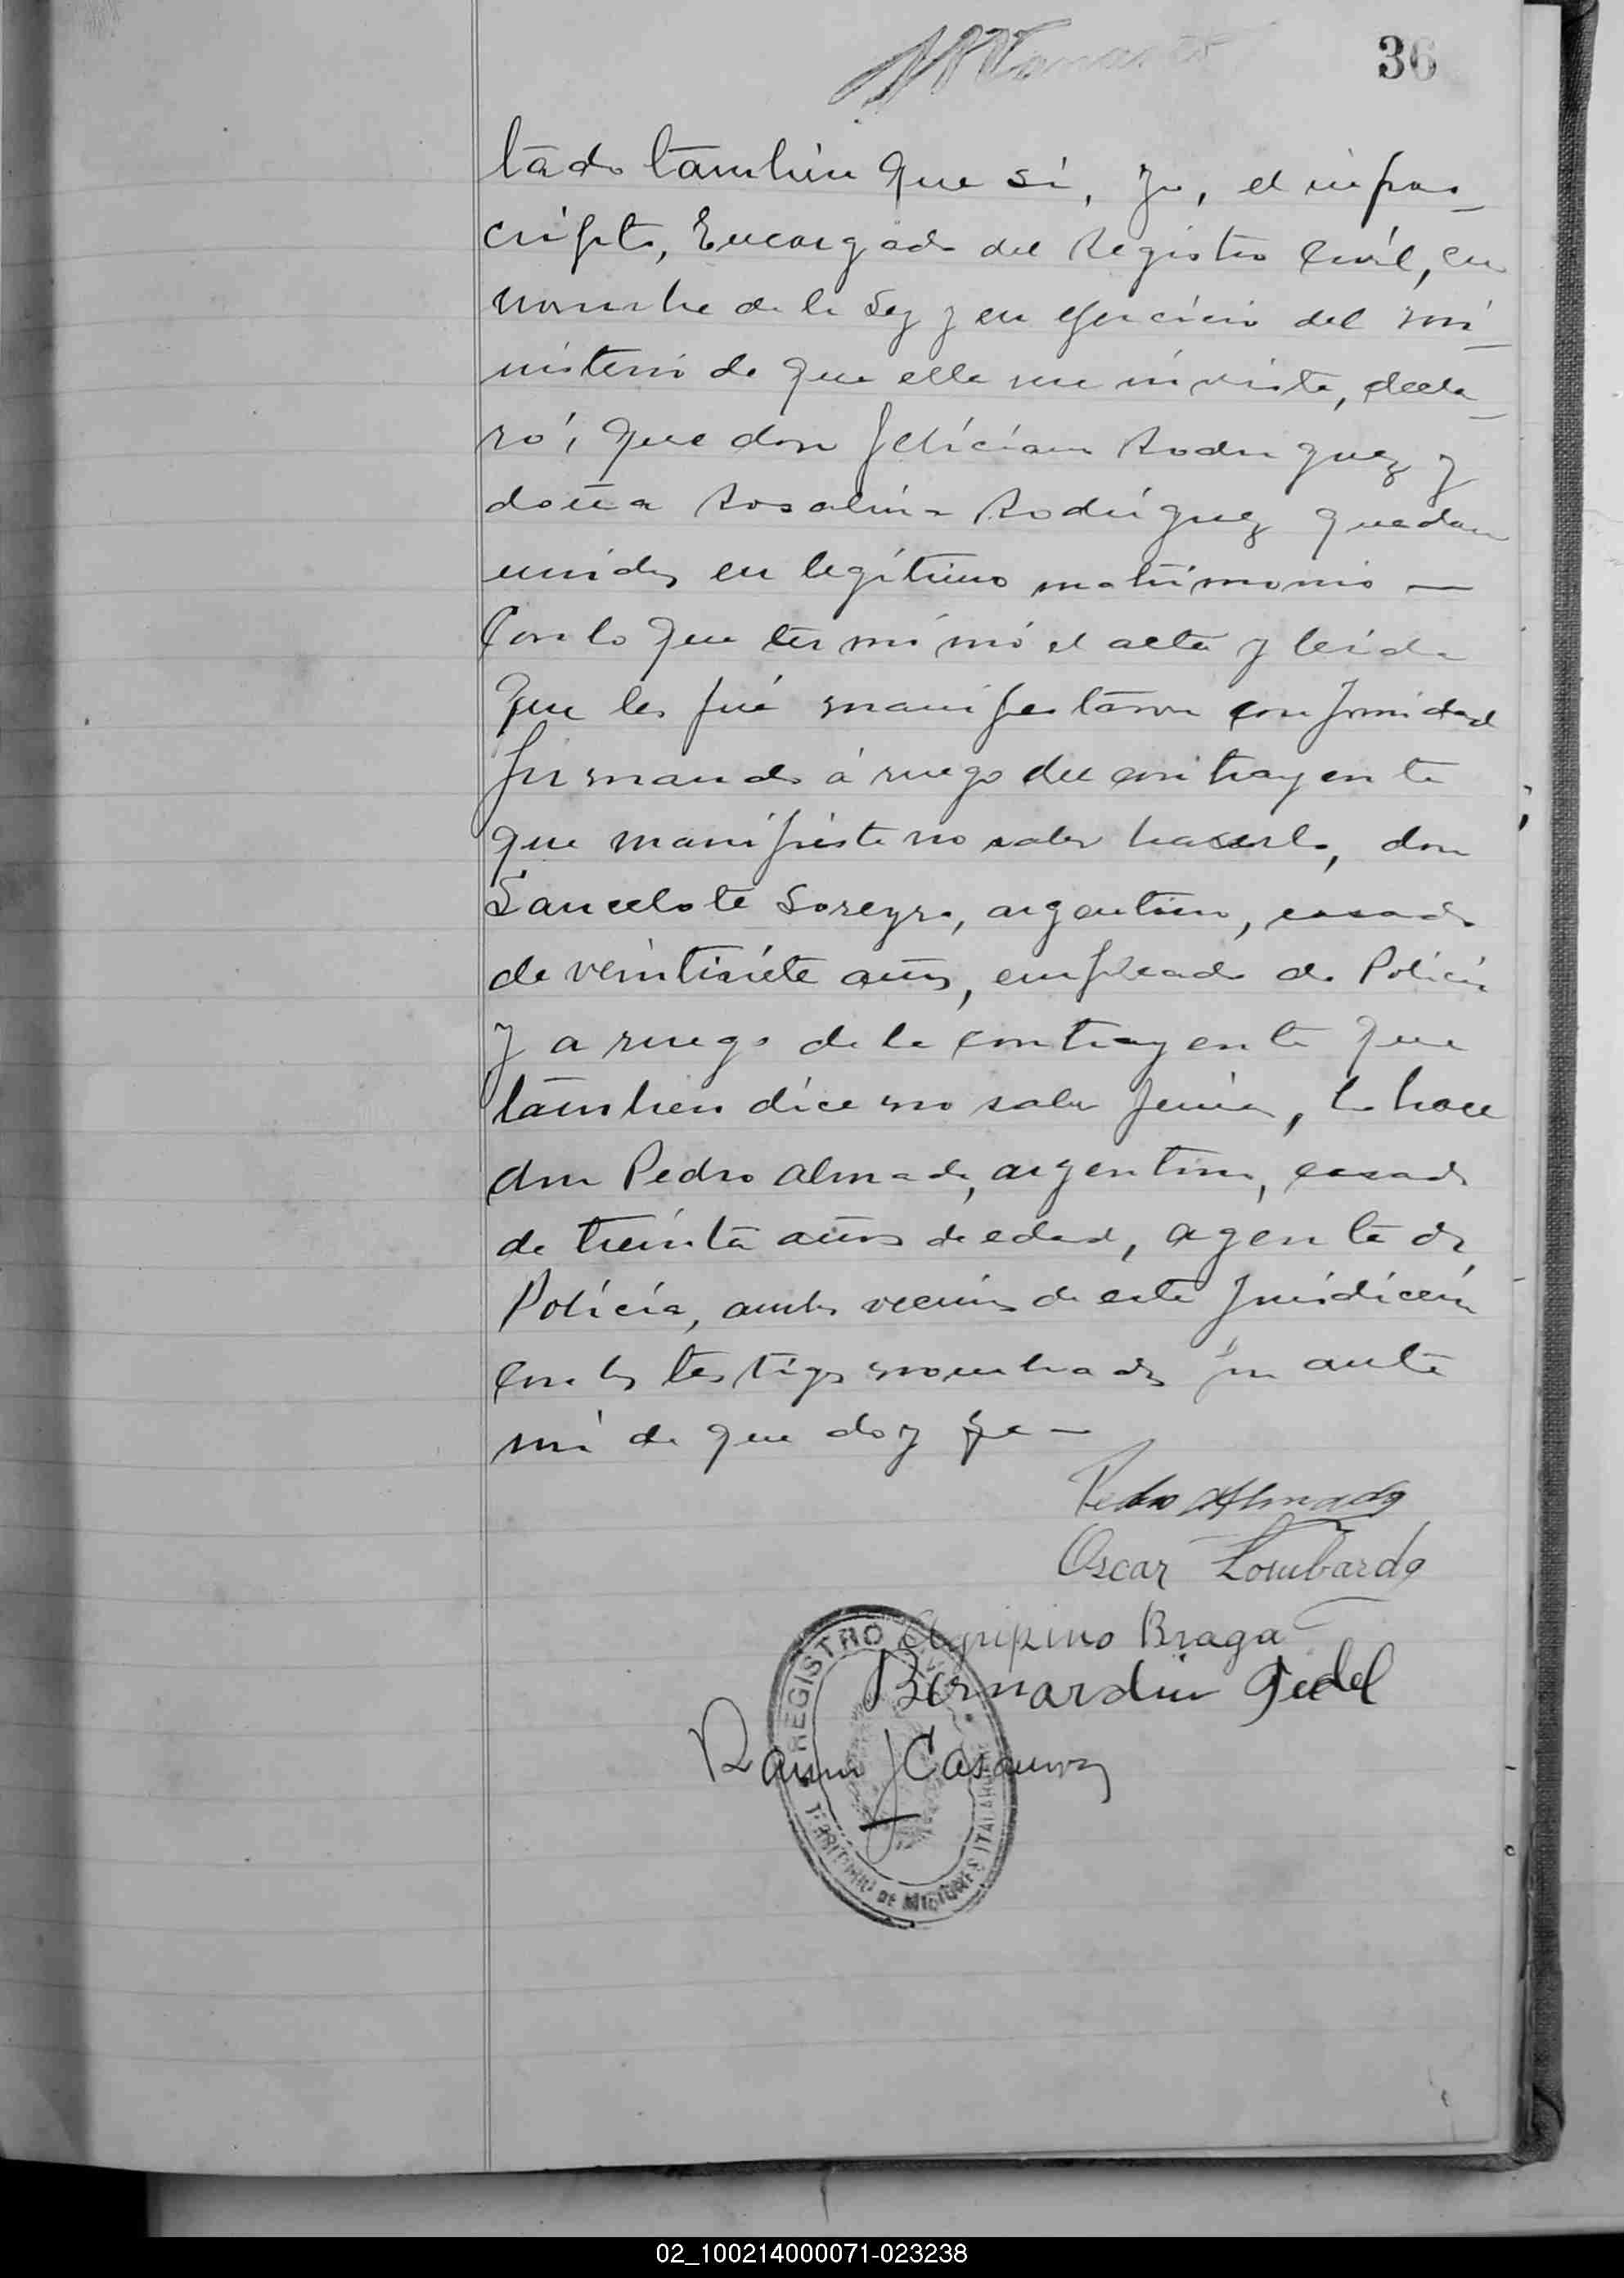 36
tado tambien que si, yo, el infras_
cripto, Encargado del Registro Civil, en
nombre de la Ley y en ejercicio del mi_
nisterio de que ella me inviste, decla_
ró, que don Feliciano Rodriguez y
doña Rosalina Rodriguez quedan
unidos en legítimo matrimonio —
Con lo que terminó el acta y leida
que les fué manifestaron conformidad
firmando á ruego del contrayente
que manifiesta no saber hacerlo, don
Lancelote Loreyro, argentino, casado
de veintisiete años, empleado de Policía
y a ruego de la contrayente que
tambien dice no saber firmar, lo hace
don Pedro Almada, argentino, casado
de treinta años de edad, agente de
Policía, ambos vecinos de esta Jurisdicción
con los testigos nombrados por ante
mi de que doy fe —
Pedro Almada
Oscar Lombardo
Agripino Braga
Bernardin Gedel
Ramn J Casanova
REGISTRO CIVIL
TERRITORIO DE MISIONES ITACARUARE
02_100214000071-023238